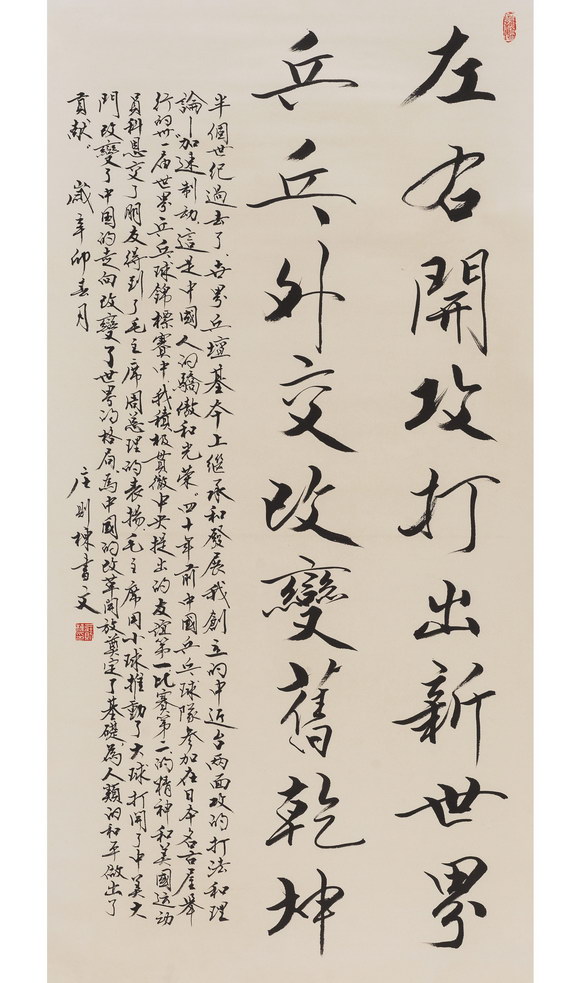 左右開攻打出新世界
乒乓外交改變舊乾坤
半個世纪過去了，世界乒壇基本上继承和發展我創立的中近台两面攻的打法和理
論—加速制动，這是中國人的驕傲和光荣。四十年前中國乒乓球隊参加在日本名古屋舉
行的卅一届世界乒乓球錦標賽中我積极貫徹中央提出的友谊第一比赛第二的精神和美國运动
員科恩交了朋友得到了毛主席周总理的表揚，毛主席用小球推動了大球打開了中美大
門改變了中国的走向改變了世界的格局，為中國的改革開放奠定了基礎，為人類的和平做出了
貢献。 歲辛卯春月
庄則棟書文